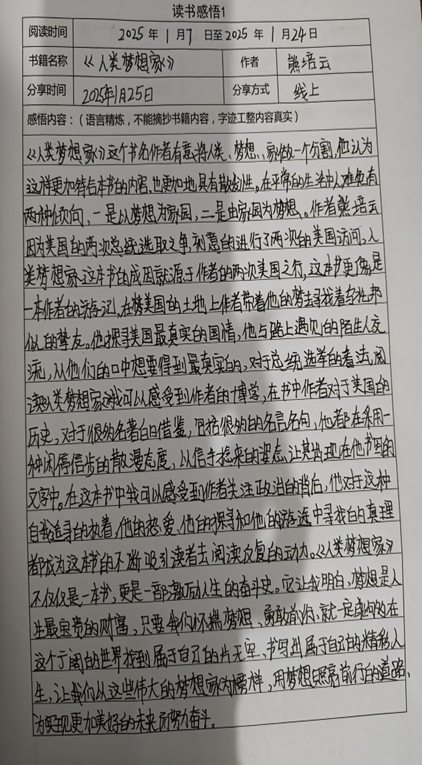 读书感悟1
阅读时间 2025年1月7日至2025年1月24日
书籍名称 《人类梦想家》 作者 熊培云
分享时间 2025年1月25日 分享方式 线上
感悟内容:(语言精炼,不能摘抄书籍内容,字迹工整内容真实)
《人类梦想家》这个书名作者有意将人类、梦想、家做一个分割,他认为
这样更加符合本书的内容,也更加地具有散创性。在平常的生活中人难免有
两种倾向,一是以梦想为家园,二是由家园为梦想。作者熊培云
因为美国的两次总统选取之争,刻意的进行了两次的美国访问,人
类梦想家这本书的成因就源于作者的两次美国之行,这本书更像是
一本作者的游记,在美国的土地上作者带着他的梦去寻找着各社邦
似的挚友。他探寻美国最真实的国情,他与路上遇见的陌生人交
流,从他们的口中想要得到最真实的,对于总统选举的看法,阅
读《人类梦想家》我可以感受到作者的博学,在书中作者对于美国的
历史,对于很多名著的借鉴,包括很多的名言名句,他都在采用一
种闲停信步的散漫态度,以信手拈来的姿态,让其出现在他书写的
文字中。在这本书中我可以感受到作者关注政治的背后,他对于这种
自我追寻的执着,他的热爱、他的探寻和他的游逛中寻找的真理
都成为这本书的不断吸引读者去阅读反复的动力。《人类梦想家》
不仅仅是一本书,更是一部激励人生的奋斗史。它让我明白,梦想是人
生最宝贵的财富,只要我们怀揣梦想、勇敢前行,就一定能够在
这个广阔的世界找到属于自己的一片天空,书写出属于自己的精彩人
生,让我们从这些伟大的梦想家为榜样,用梦想照亮前行的道路,
为实现更加美好的未来而努力奋斗。